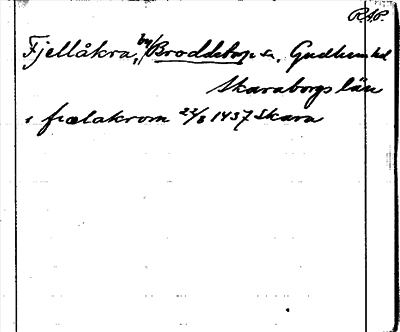 R.A.P.
Fjellåkra, by, Broddetorp sn, Gudhems hd
Skaraborgs län
i fiælakrom 22/8 1437 Skara